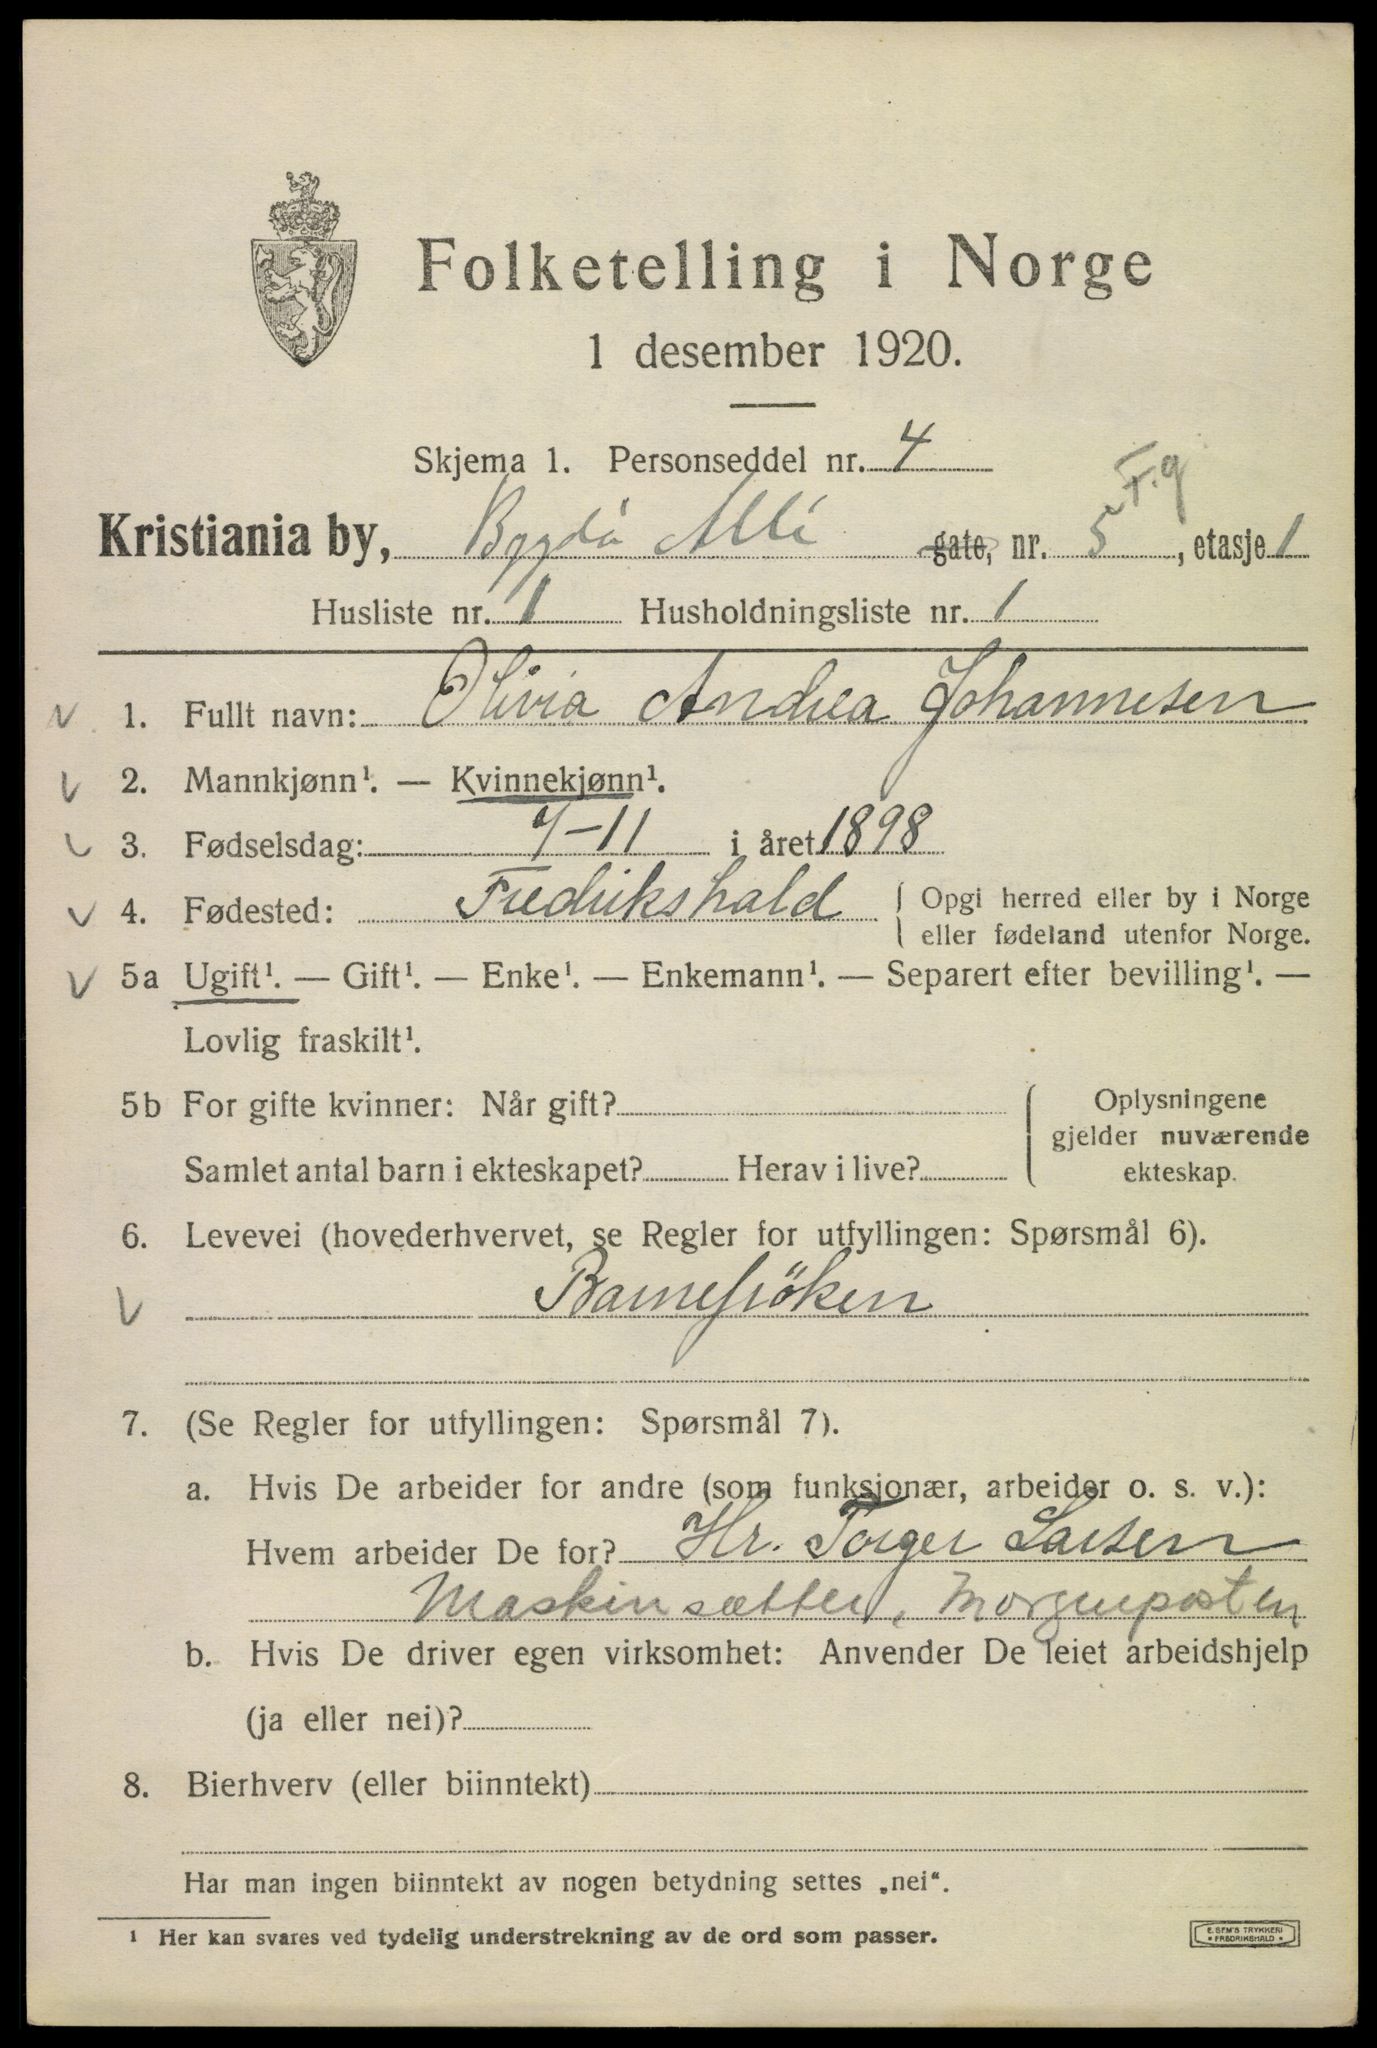 Folketelling i Norge
1 desember 1920.
Skjema 1. Personseddel nr. 4
F.g
Kristiania by, Bygdö Allé gate, nr. 5, etasje 1
Husliste nr. 1 Husholdningsliste nr. 1
1. Fullt navn: Olivia Andrea Johannesen
2. Mannkjønn¹. — Kvinnekjønn¹.
3. Fødselsdag: 7-11 i året 1898
4. Fødested: Fredrikshald { Opgi herred eller by i Norge
eller fødeland utenfor Norge.
5a Ugift¹. — Gift¹. — Enke¹. — Enkemann¹. — Separert efter bevilling¹. —
Lovlig fraskilt¹.
5b For gifte kvinner: Når gift? { Oplysningene
gjelder nuværende
Samlet antal barn i ekteskapet? Herav i live? ekteskap.
6. Levevei (hovederhvervet, se Regler for utfyllingen: Spørsmål 6).
Barnefröken
7. (Se Regler for utfyllingen: Spørsmål 7).
a. Hvis De arbeider for andre (som funksjonær, arbeider o. s. v.):
Hvem arbeider De for? Hr. Torger Larsen
Maskinsætter, Morgenposten
b. Hvis De driver egen virksomhet: Anvender De leiet arbeidshjelp
(ja eller nei)?
8. Bierhverv (eller biinntekt)
Har man ingen biinntekt av nogen betydning settes „nei“.
¹ Her kan svares ved tydelig understrekning av de ord som passer.
E. SEM'S TRYKKERI
• FREDRIKSHALD •